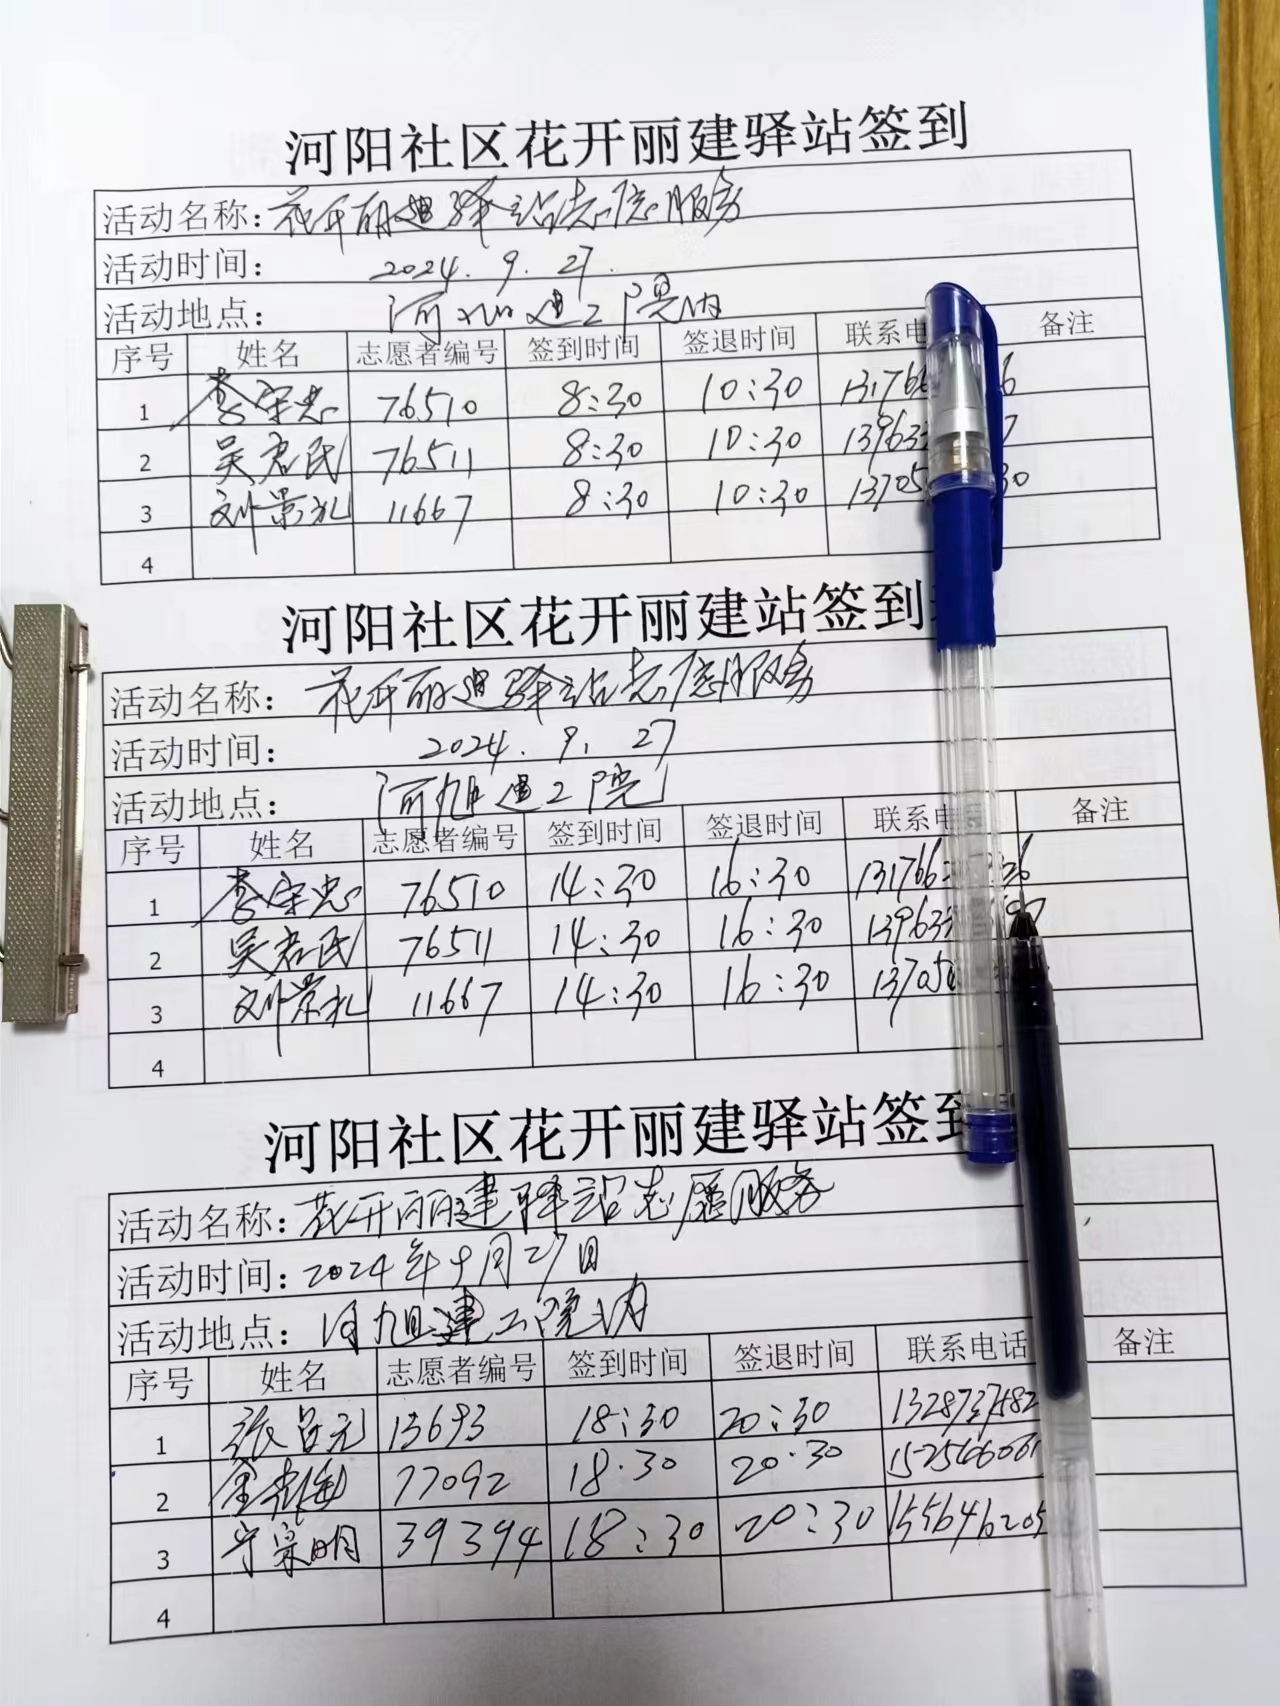 河阳社区花开丽建驿站签到
活动名称：花开丽建驿站志愿服务
活动时间： 2024.9.27.
活动地点： 河旭建工院内
序号 姓名 志愿者编号 签到时间 签退时间 联系电 备注
1 李宗忠 76510 8:30 10:30 131766 6
2 吴君民 76511 8:30 10:30 139633 7
3 刘景礼 11667 8:30 10:30 13705 30
4
河阳社区花开丽建站签到
活动名称： 花开丽建驿站志愿服务
活动时间： 2024.9.27
活动地点： 河旭建工院
序号 姓名 志愿者编号 签到时间 签退时间 联系电 备注
1 李宗忠 76510 14:30 16:30 131766 36
2 吴君民 76511 14:30 16:30 139633
3 刘景礼 11667 14:30 16:30 13705
4
河阳社区花开丽建驿站签到
活动名称：花开丽建驿站志愿服务
活动时间：2024年9月27日
活动地点：河旭建工院内
序号 姓名 志愿者编号 签到时间 签退时间 联系电话 备注
1 张吕元 13693 18:30 20:30 1328737582
2 77092 18·30 20·30 1525466061
3 宁宗明 39394 18:30 20:30 1556461205
4